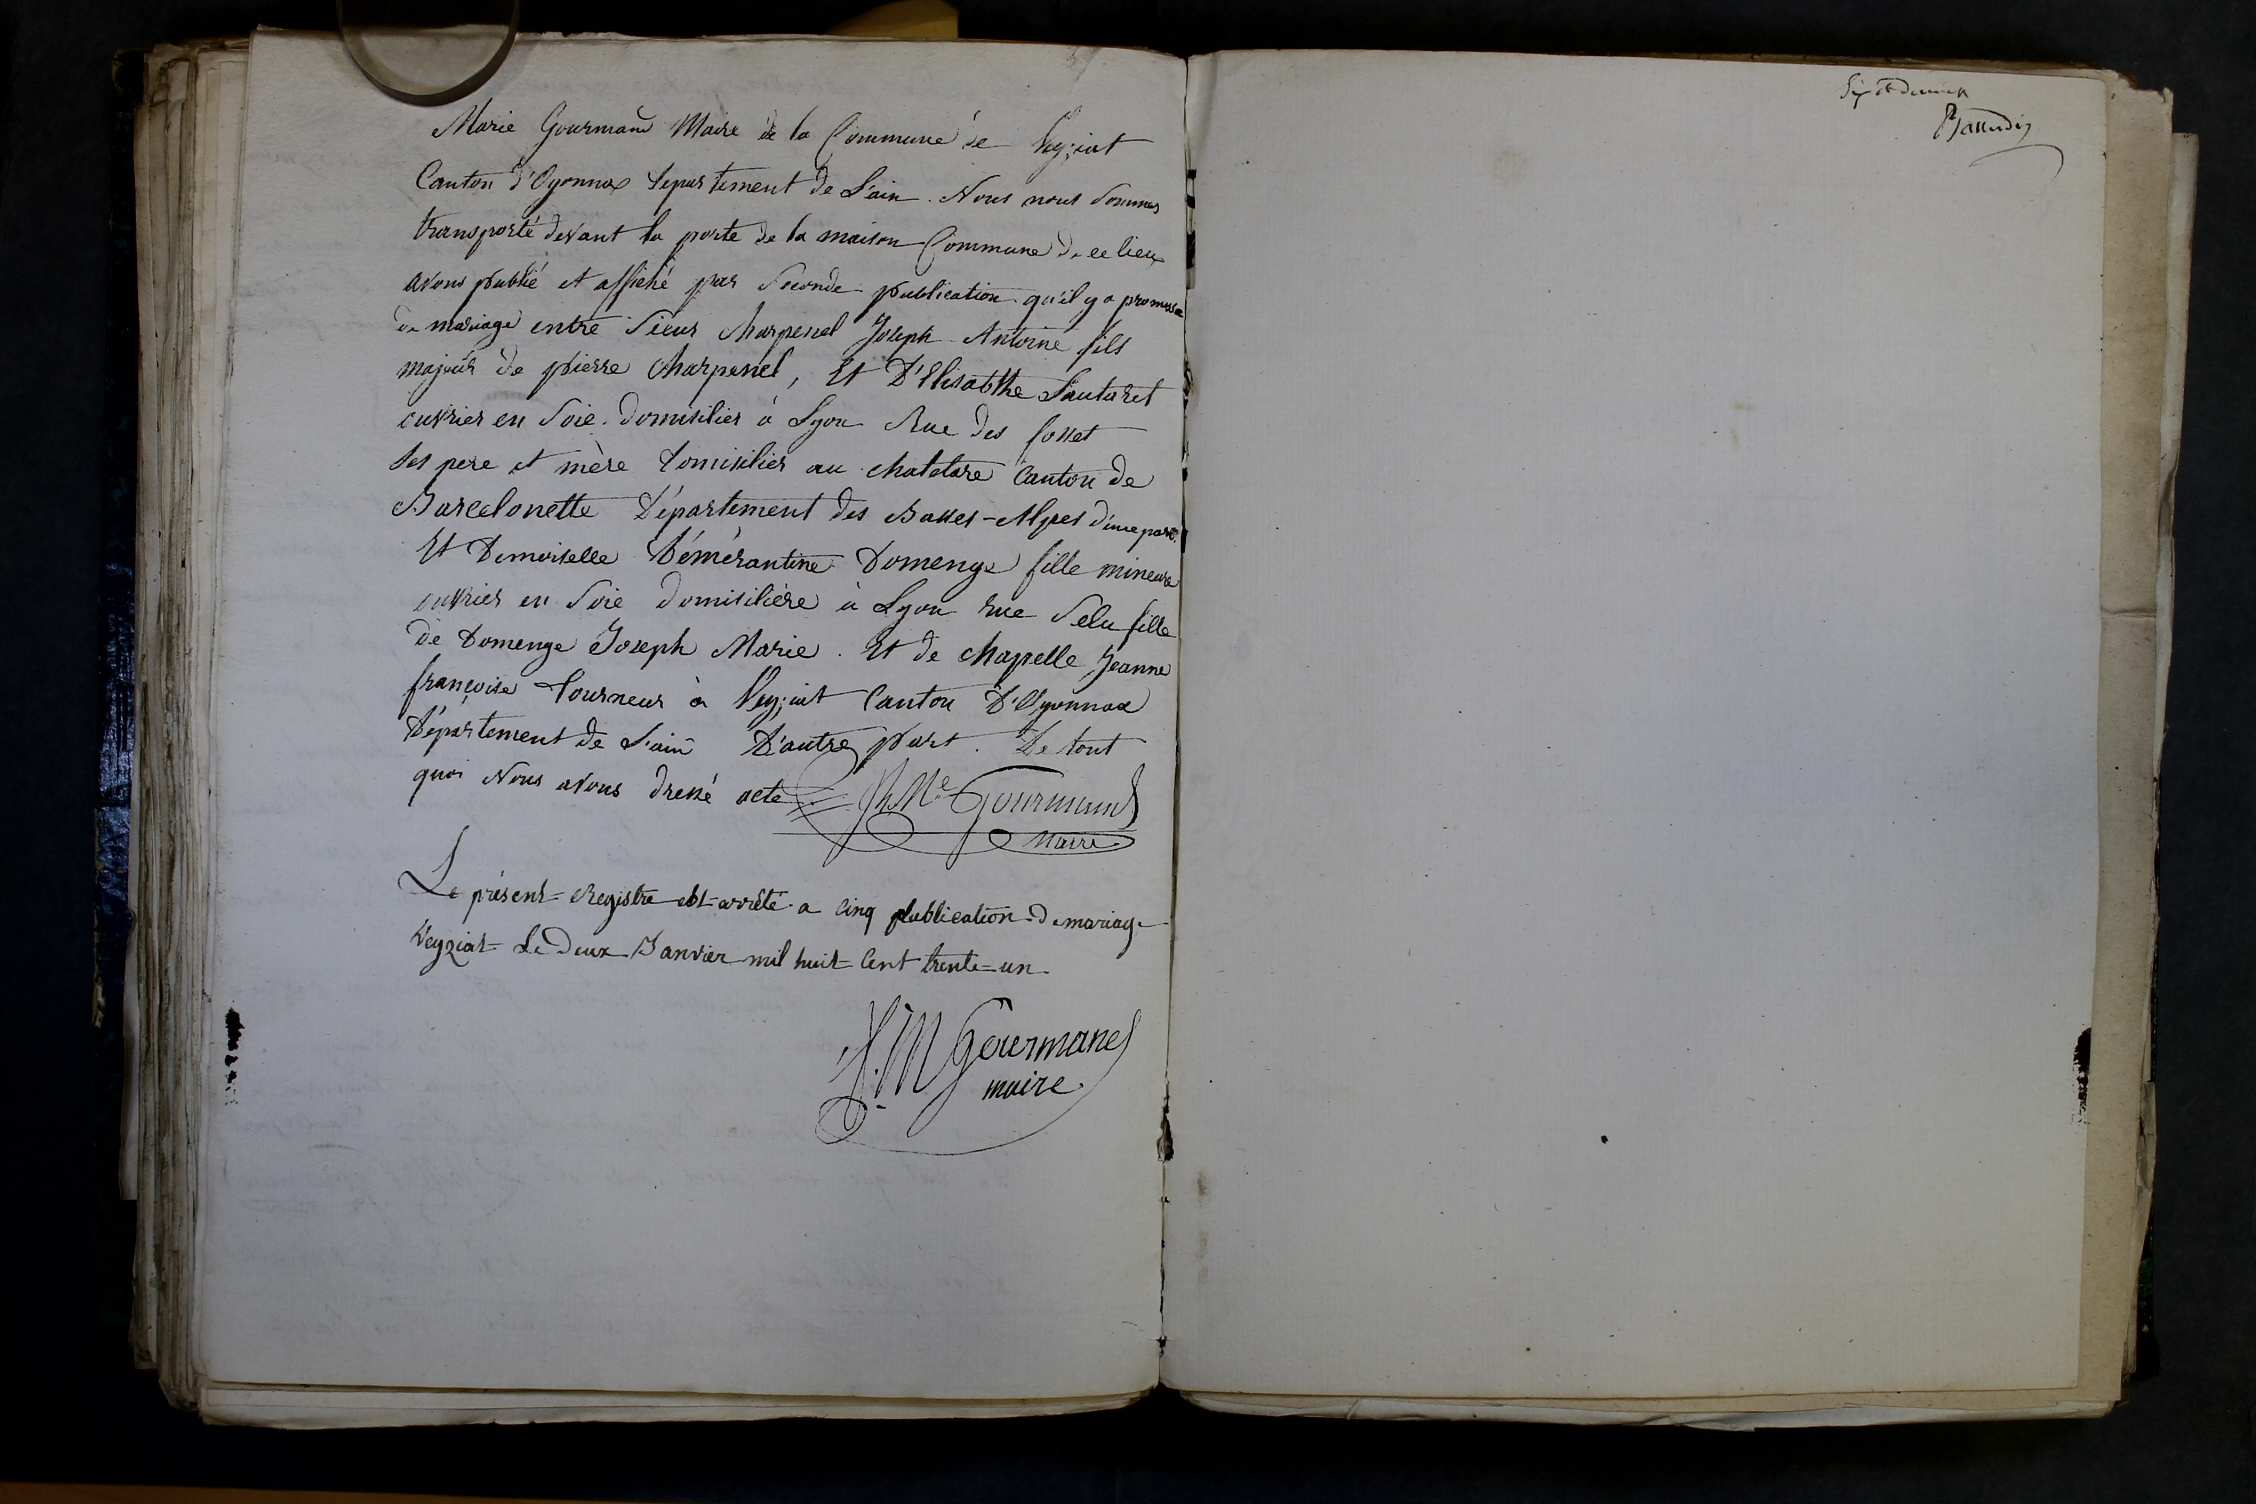 Marie Gourmand Maire de la Commune de Veyziat
Canton d'Oyonnax Departement de L'ain. Nous nous Sommes
transporté devant la porte de la maison Commune de ce lieu
avons publié et affiché par Seconde publication qu'il y a promesse
de mariage entre Sieur Charpenel Joseph Antoine fils
majeur de pierre Charpenel, Et D'Elisabthe Sauturet
ouvrier en Soie domisilier à Lyon Rue des fosset
Ses pere et mère domisilier au chatelare Canton de
Barcelonette Département des Basses-Alpes d'une part.
Et Demoiselle Démérantine Domenge fille mineure
ouvrier en Soie domisilière à Lyon rue Selu fille
de Domenge Joseph Marie. Et de Chapelle Jeanne
françoise tourneur à Veyziat Canton D'Oyonnax
Département de L'ain D'autre part. De tout
quoi Nous avons dressé acte Gourmand
Maire
Le présent Registre est arrêté a Cinq publication de mariage
Veyziat Le Deux Janvier mil huit Cent trente-un
J.M Gourmand
maire
Six et dernier